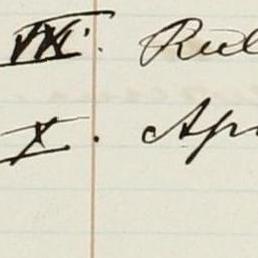 IX. Rul
X. Apr